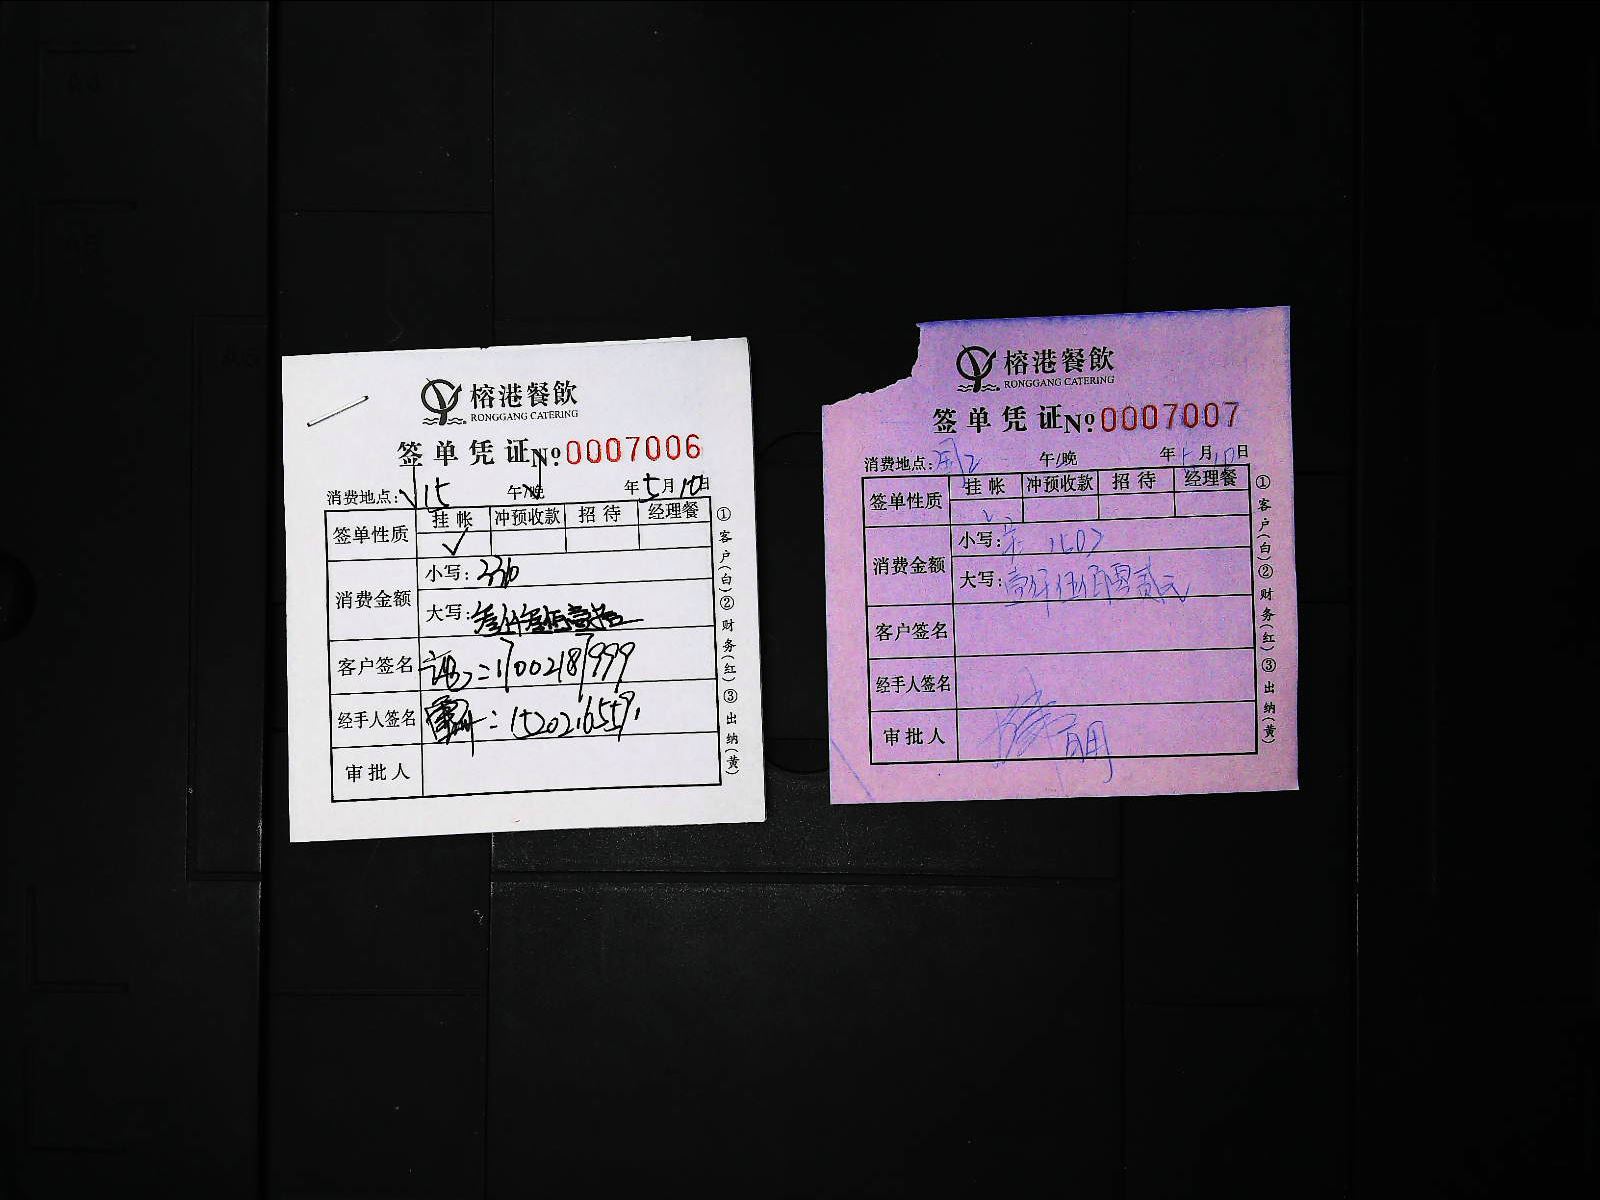 榕港餐飲
RONGGANG CATERING
签单凭证 №0007006
消费地点: 15 午/晚 年5月10日
签单性质 挂帐 冲预收款 招待 经理餐
✓
消费金额 小写:
大写:
客户签名 17002181999
经手人签名
审批人
①客户(白)②财务(红)③出纳(黄)
榕港餐飲
RONGGANG CATERING
签单凭证 №0007007
消费地点: 午/晚 年5月10日
签单性质 挂帐 冲预收款 招待 经理餐
消费金额 小写: 1502
大写: 壹仟伍佰零贰元
客户签名
经手人签名
审批人
①客户(白)②财务(红)③出纳(黄)